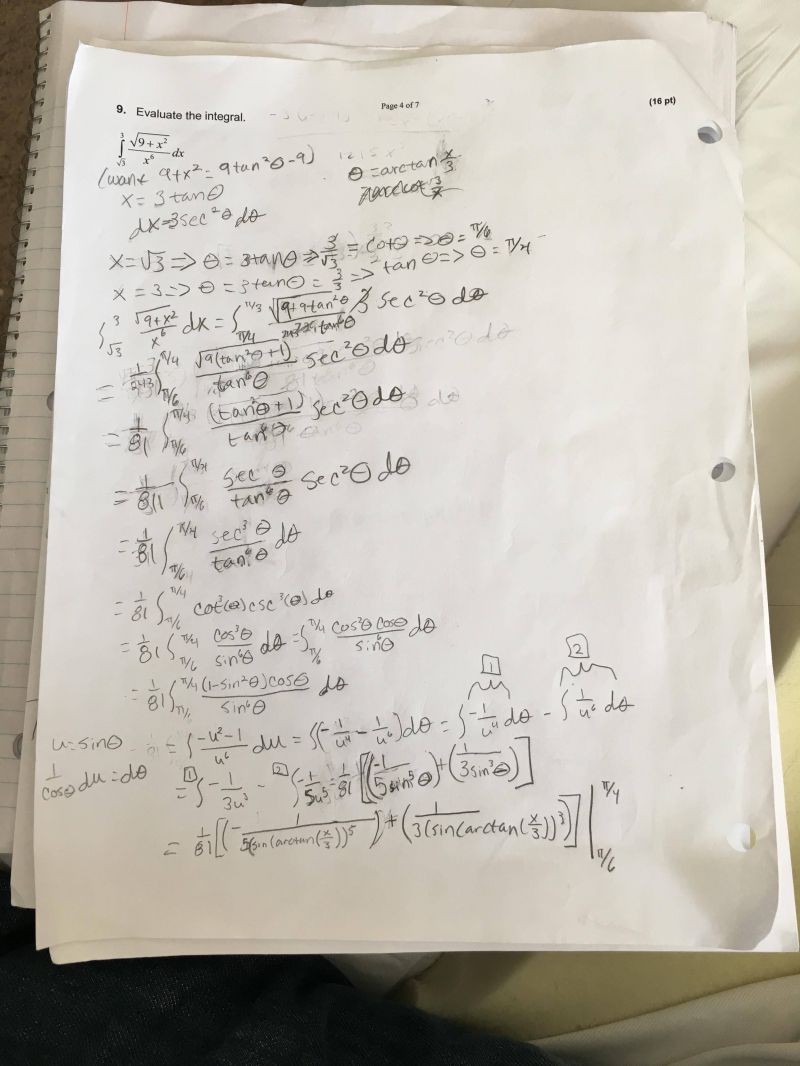 Page 4 of 7
(16 pt)
9. Evaluate the integral.
∫_{√3}^{3} √(9+x²)/x⁶ dx
(want 9+x² = 9tan²θ-9)
θ = arctan x/3
x = 3tanθ
dx = 3sec²θ dθ
x=√3 => θ = 3tanθ => 3/√3 = cotθ => θ = π/6
x = 3 => θ = 3tanθ = 3/3 => tanθ => θ = π/4
∫_{√3}^{3} √(9+x²)/x⁶ dx = ∫_{π/4}^{π/3} √(9+9tan²θ) 3 sec²θ dθ
= 1/243 ∫_{π/6}^{π/4} √(9(tan²θ+1))/tan⁶θ sec²θ dθ
= 1/81 ∫_{π/6}^{π/4} (tan²θ+1)/tan⁶θ sec²θ dθ
= 1/81 ∫_{π/6}^{π/4} sec θ/tan⁶θ sec²θ dθ
= 1/81 ∫_{π/6}^{π/4} sec³θ/tan⁶θ dθ
= 1/81 ∫_{π/6}^{π/4} cot³(θ)csc³(θ)dθ
= 1/81 ∫_{π/6}^{π/4} cos³θ/sin⁶θ dθ = ∫_{π/6}^{π/4} cos²θ cosθ/sin⁶θ dθ
= 1/81 ∫_{π/6}^{π/4} (1-sin²θ)cosθ/sin⁶θ dθ
1 2
u=sinθ = ∫ -u²-1/u⁶ du = ∫(-1/u⁴ - 1/u⁶)dθ = ∫-1/u⁴ dθ - ∫1/u⁶ dθ
1/cosθ du = dθ = 1 ∫-1/3u³ - 2 ∫-1/5u⁵ = 1/81 [(-1/5sin⁵θ)+(1/3sin³θ)]
= 1/81 [(-1/5(sin(arctan(x/3))⁵)+(1/3(sin(arctan(x/3))³)] |_{π/6}^{π/4}